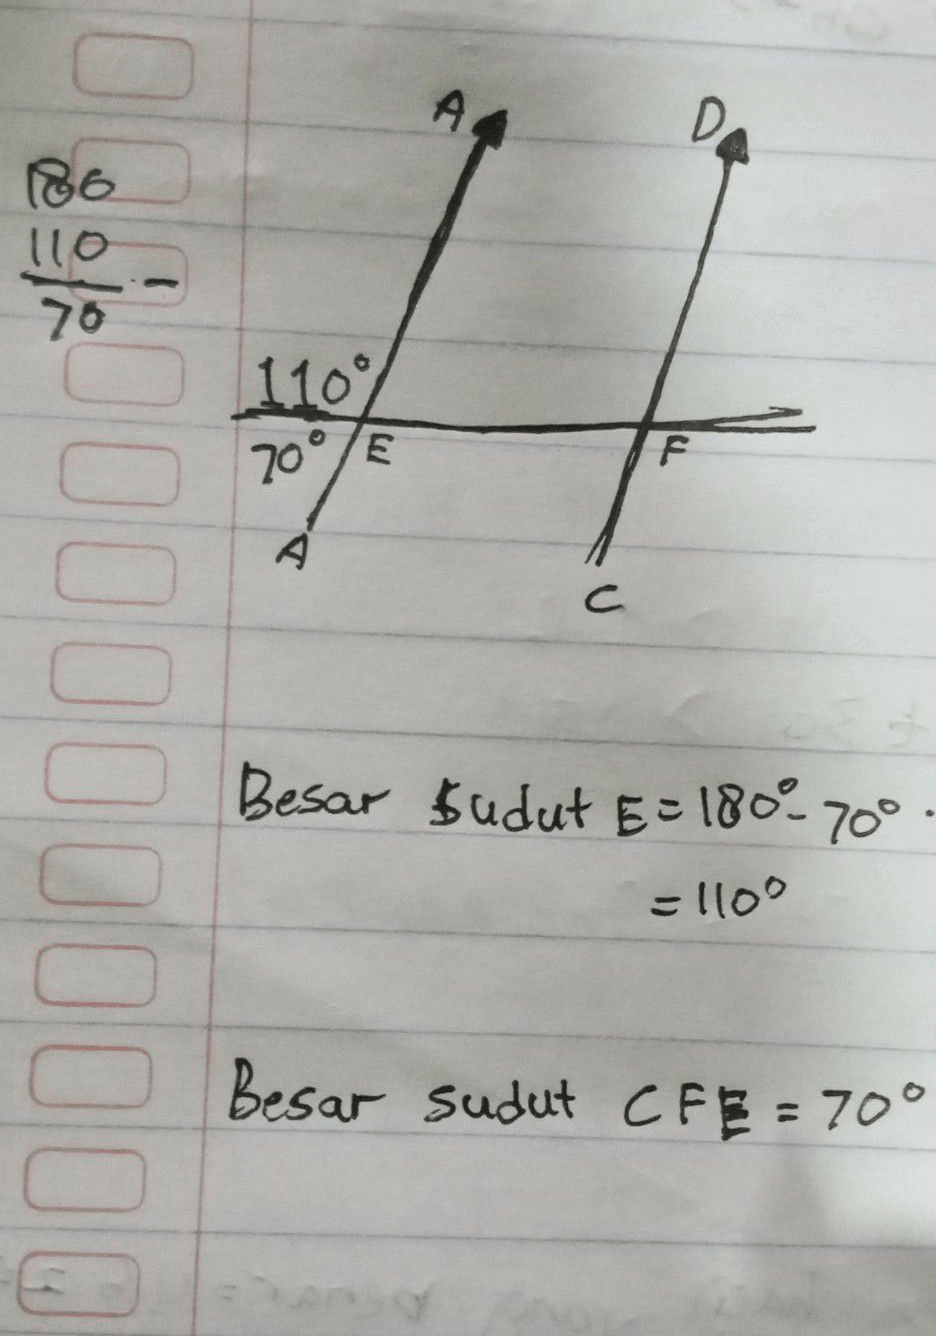 A
D
180
110
70
110°
70°
E
F
A
C
Besar Sudut E = 180° - 70°
= 110°
Besar sudut CFE = 70°